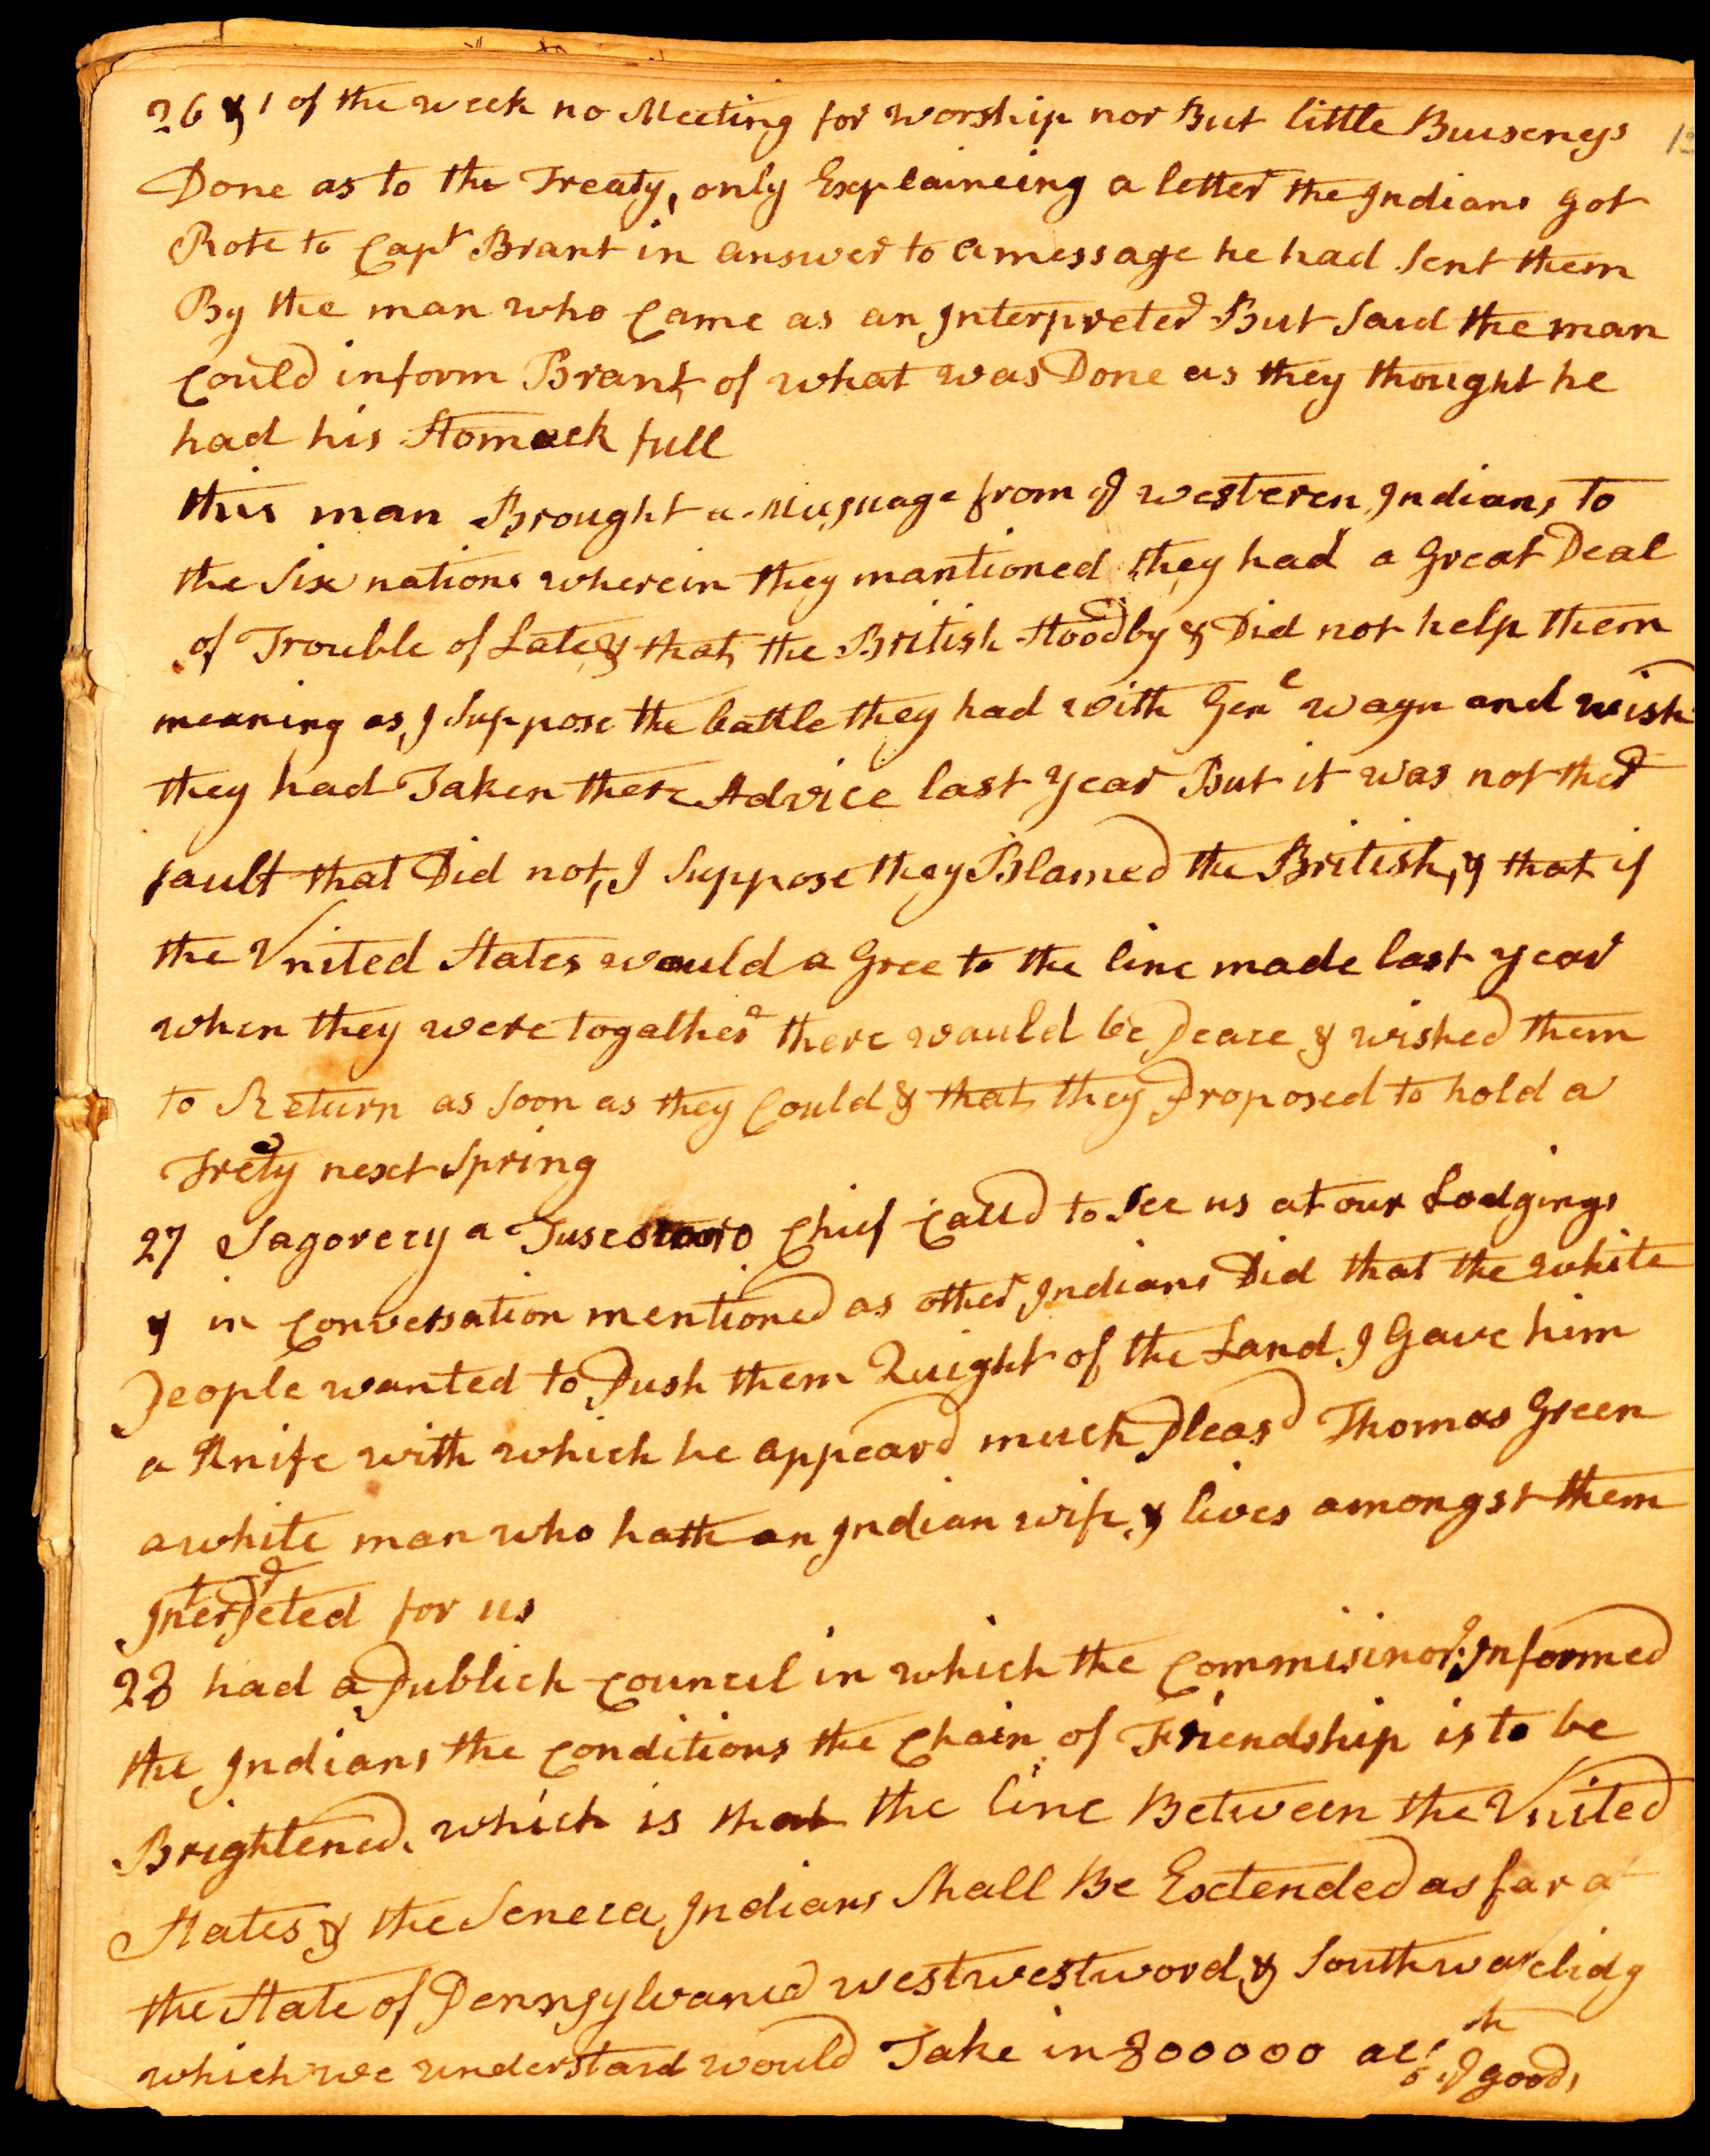 26 & 1 of the week no Meeting for worship nor But little Buiseness
Done as to the Treaty, only Explaineing a letter the Indians got
Rote to Capt Brant in answer to a message he had Sent them
By the man who Came as an Interpreter But Said the man
Could inform Brant of what was Done as they thought he
had his Stomack full
this man Brought a from westeren Indians to
the Six nations wherein they mantioned they had a Great Deal
of Trouble of Late & that the British Stood by & Did not help them
meaning as, I Suppose the battle they had with Genl wayn and wish
they had Taken there Advice last year But it was not ther
fault that Did not, I Suppose they Blamed the British, & that if
the United States would a Gree to the line made last year
when they were togather there would be Peace & wished them
to Return as Soon as they Could & that they Proposed to hold a
Treaty next Spring
27 Sagorecy a Chief Calld to See us at our Lodgings
& in Conversation mentioned as other Indians Did that the white
People wanted to Push them Quight of the Land. I Gave him
a Knife with which he appeard much Pleasd Thomas Green
a white man who hath an Indian wife, & lives amongst them
Interpreted for us
28 had a Publick Council in which the Commisinors Informed
the Indians the Conditions the Chain of Friendship is to be
Brightened, which is that the line Between the United
States & the Seneca Indians Shall Be Extended as far as
the State of Pennsylvania westwestword &
which we understand would Take in 800000 good,